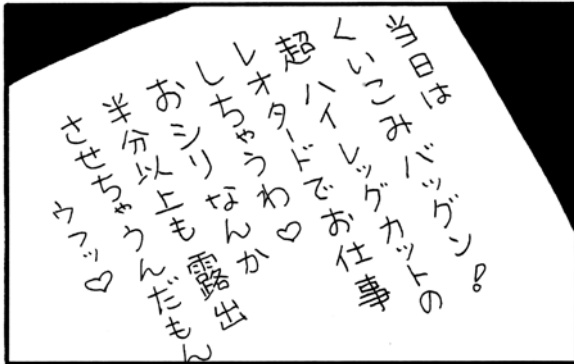 当日は
くいこみバッグン!
超ハイレッグカットの
レオタードでお仕事
しちゃうわ♡
おシリなんか
半分以上も露出
させちゃうんだもん
ウフッ♡